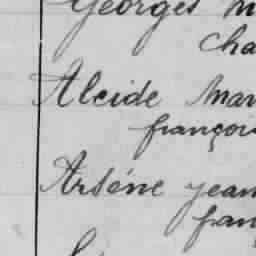 Georges
Cha
Alcide Mar
françois
Arsène Jean
fran